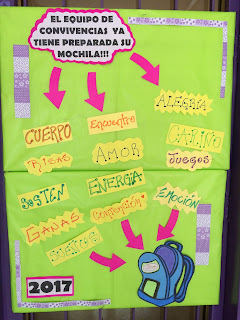 EL EQUIPO DE
CONVIVENCIAS YA
TIENE PREPARADA SU
MOCHILA!!!
ALEGRÍA
CUERPO
ENCUENTRO
CARIÑO
RISAS
AMOR
JUEGOS
SOSTÉN
ENERGÍA
EMOCIÓN
GANAS
CONTENSIÓN
SUEÑOS
2017